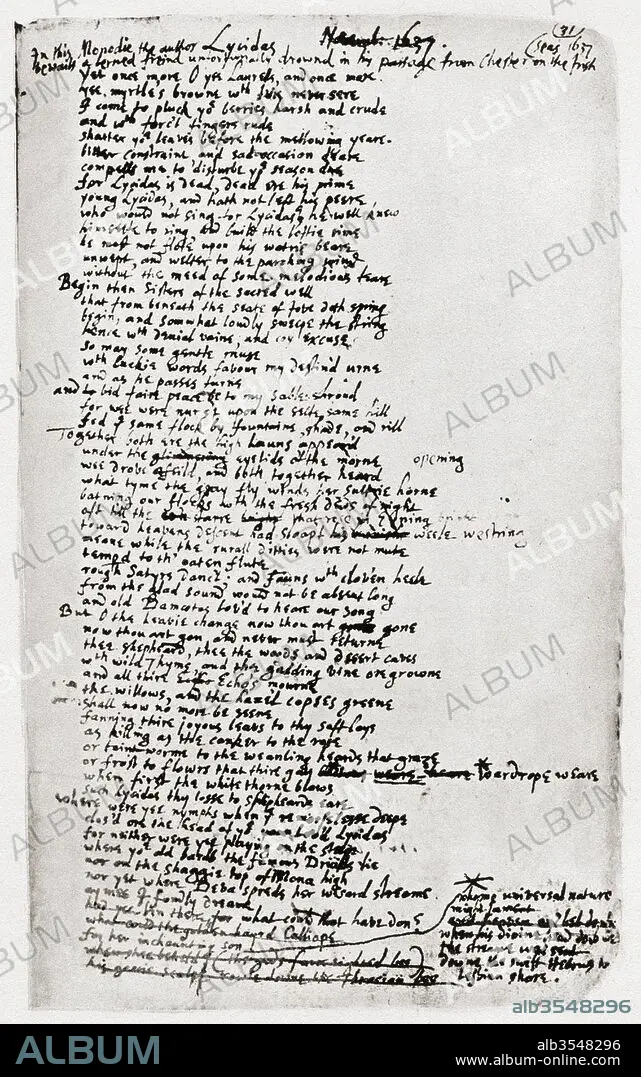 Lycidas
Novemb: 1637.
(31
(seas 1637
In this Monodie the author
bewails a lerned freind unfortunatly drownd in his passage from Chester on the Irish
yet once more O yee Laurels, and once more
yee myrtle's browne wth Ivie never sere
I come to pluck yor berries harsh and crude
and wth forc't fingers rude
shatter yor leaves before the mellowing yeare.
bitter constraint, and sad occasion deare
compells me to disturbe yor season due
for Lycidas is dead, dead ere his prime
young Lycidas, and hath not left his peere
who would not sing for Lycidas, he well knew
himselfe to sing, & build the loftie rime
he must not flote upon his watrie beare
unwept, and welter to the parching wind
without the meed of some melodious teare
Begin then Sisters of the sacred well
that from beneath the seate of Jove doth spring
begin, and somwhat loudly sweepe the string
hence wth denial vaine, and coy excuse
so may some gentle muse
wth luckie words favour my destin'd urne
and as he passes turne
and bid faire peace be to my sable shroud
for wee were nurst upon the selfe same hill
fed ye same flock by fountaine, shade, and rill
Together both ere the high launs appear'd
under the glimmering eyelids of the morne opening
wee drove afeild, and both together heard
what tyme the gray fly winds her sultrie horne
batning our flocks wth the fresh dews of night
oft till the starre
toward heavens descent had sloapt his weele westring
meane while the rurall ditties were not mute
temper'd to th' oaten flute
rough Satyrs danc't, and fauns wth cloven heele
from the glad sound would not be absent long
and old Damœtas lov'd to heare our song
But O the heavie change now thou art gone
now thou art gon, and never must returne
thee shepheard, thee the woods and desert caves
wth wild Thyme, and the gadding vine oregrowne
and all thire Echo's mourne
the willows, and the hazel copses greene
shall now no more be seene
fanning thire joyous leavs to thy soft lays
as killing as the canker to the rose
or taint-worme to the weanling heards that graze
or frost to flowrs that thire gay weare wardrope weare
when first the white thorne blows
such Lycidas thy losse to shepheards eare
where were yee nymphs when ye remorselesse deepe
clos'd ore the head of yor Lycidas
for neither were yee playing on the steepe
where yor old bards the famous Druids lie
nor on the shaggie top of Mona high
nor yet where Deva spreds her wisard streame
ay mee I fondly dreame
had yee bin there, for what could that have don
what could the golden hayrd Calliope
for her inchaunting son
when shee beheld (the gods farre sighted bee)
his goarie scalpe rowle downe the Thracian lee
whome universal nature
might lament
when his divine head downe
the streame was sent
downe the swift Hebrus to
Lesbian shore.
ALBUM
alb3548296
ALBUM
alb3548296
www.album-online.com